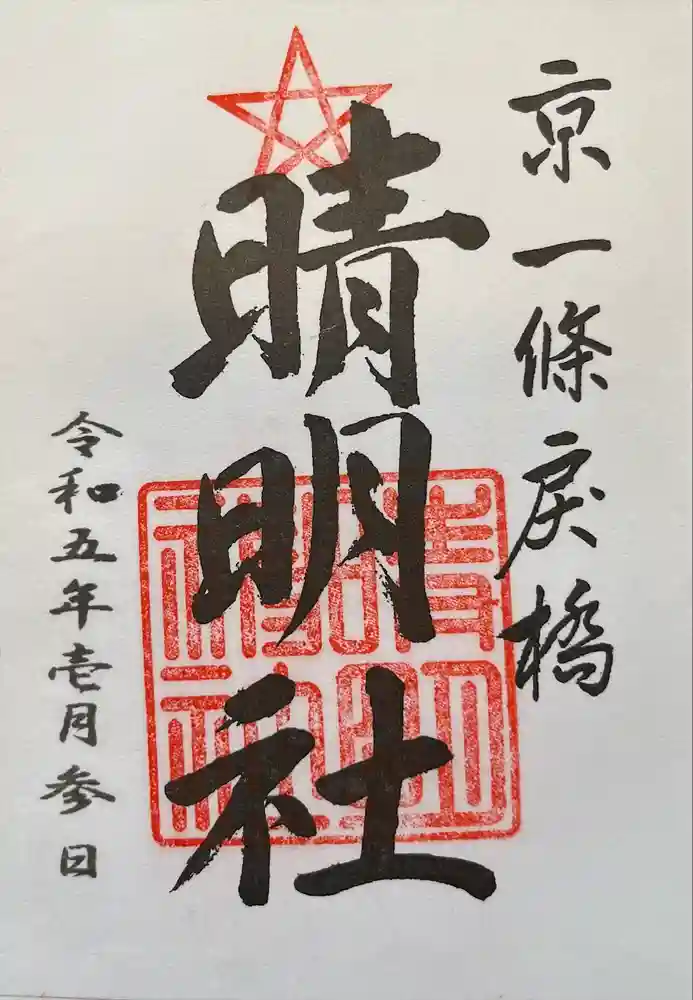 京一條戻橋
晴明社
晴明神社
令和五年壱月参日